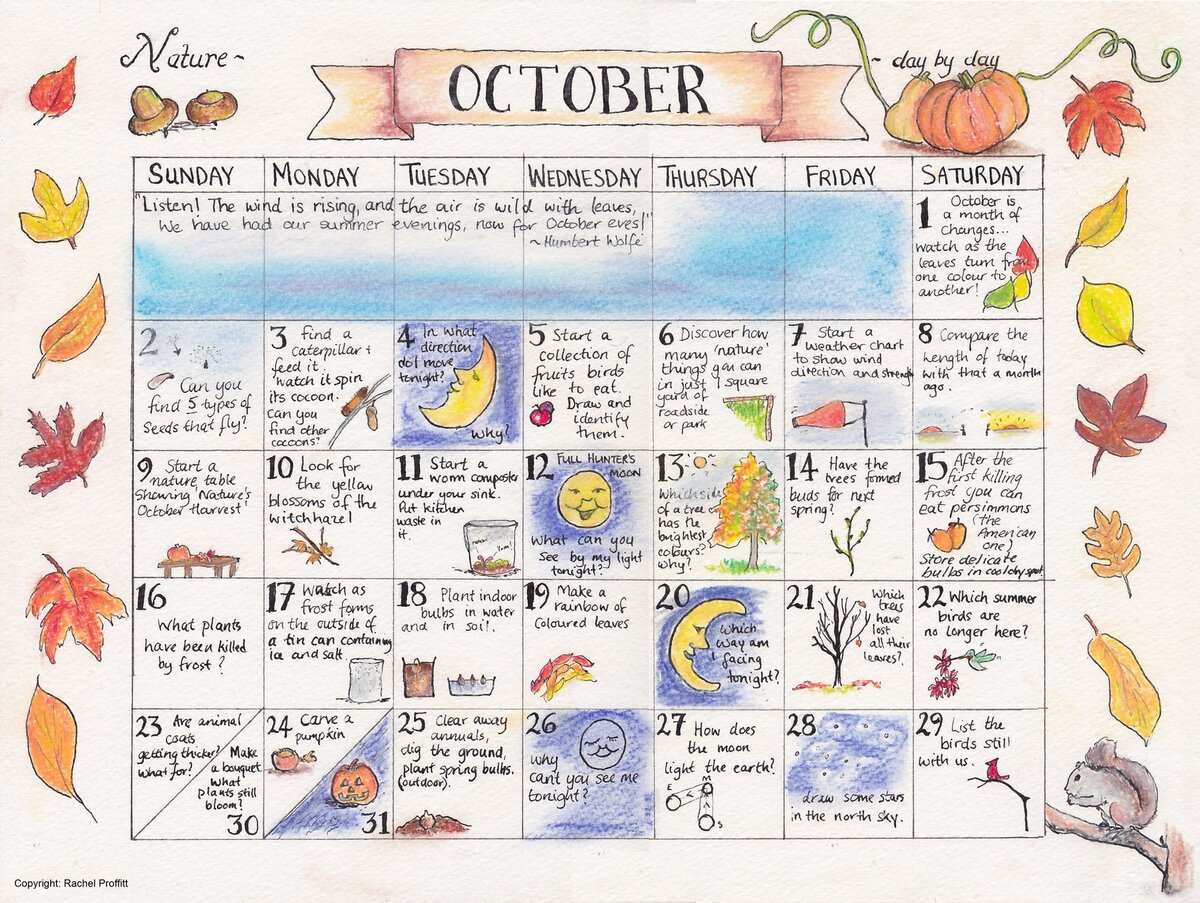 Nature ~
OCTOBER
~ day by day
SUNDAY MONDAY TUESDAY WEDNESDAY THURSDAY FRIDAY SATURDAY
"Listen! The wind is rising, and the air is wild with leaves,
We have had our summer evenings, now for October eves!"
~ Humbert Wolfe
1 October is
a month of
changes...
watch as the
leaves turn from
one colour to
another!
2
Can you
find 5 types of
seeds that fly?
3 find a
caterpillar +
feed it.
watch it spin
its cocoon.
Can you
find other
cocoons?
4 In what
direction
do I move
tonight?
Why?
5 Start a
collection of
fruits birds
like to eat.
Draw and
identify
them.
6 Discover how
many 'nature'
things you can
in just 1 square
yard of
roadside
or park
7 Start a
weather chart
to show wind
direction and strength
8 Compare the
length of today
with that a month
ago.
9 Start a
nature table
Showing 'Nature's
October Harvest'
10 Look for
the yellow
blossoms of the
witchhazel
11 Start a
worm composter
under your sink.
Put kitchen
waste in
it.
12 FULL HUNTER'S
MOON
What can you
see by my light
tonight?
13
Which side
of a tree
has the
brightest
colours?
Why?
14 Have the
trees formed
buds for next
spring?
15 After the
first killing
frost you can
eat persimmons
(the
American
one)
Store delicate
bulbs in cool dry spot
16
What plants
have been killed
by frost?
17 Watch as
frost forms
on the outside of
a tin can containing
ice and salt
18 Plant indoor
bulbs in water
and in soil.
19 Make a
rainbow of
coloured leaves
20
Which
way am
I facing
tonight?
21 Which
trees
have
lost
all their
leaves?
22 Which summer
birds are
no longer here?
23 Are animal
coats
getting thicker?
What for?
Make
a bouquet
what
plants still
bloom?
30
24 Carve a
pumpkin
31
25 Clear away
annuals,
dig the ground,
plant spring bulbs.
(outdoor).
26
why
can't you see me
tonight?
27 How does
the moon
light the earth?
E M
S
28
draw some stars
in the north sky.
29 List the
birds still
with us.
Copyright: Rachel Proffitt